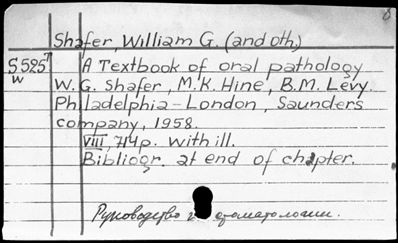 8
Shafer, William G. (and oth.)
S525 A Textbook of oral pathology
w W.G. Shafer, M.K. Hine, B.M. Levy.
Philadelphia - London, Saunders
company, 1958.
VIII, 714p. with ill.
Bibliogr. at end of chapter.
Руководство по стоматологии.